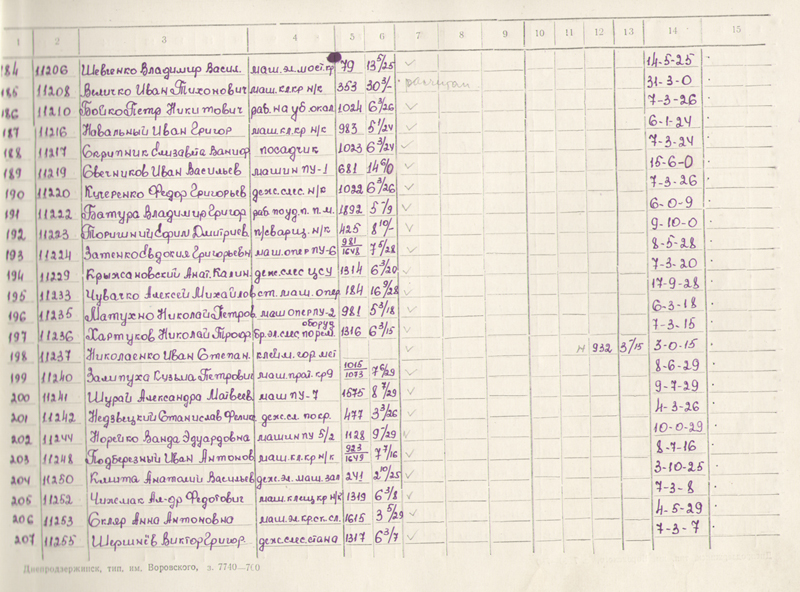 1 2 3 4 5 6 7 8 9 10 11 12 13 14 15
184 11206 Шевченко Владимир Васил. маш. эл. мост. кр 79 13 5/25 ✓ 14-5-25
185 11208 Величко Иван Тихонович маш. кл. кр н/с 353 30 3/- расчитан 31-3-0
186 11210 Бойко Петр Никитович раб. на уб. окал 1024 6 3/26 ✓ 7-3-26
187 11216 Навальный Иван Григор маш. кл. кр н/с 983 5 1/24 ✓ 6-1-24
188 11217 Скрипник Елизавта посадчик 1023 6 3/24 ✓ 7-3-24
189 11219 Свечников Иван Васильев машин ПУ-1 681 14 6/0 ✓ 15-6-0
190 11220 Кучеренко Федор Григорьев деж. слес. н/с 1022 6 3/26 ✓ 7-3-26
191 11222 Батура Владимир Григор раб по уд. п. п. м. 1892 5 -/9 ✓ 6-0-9
192 11223 Торишний Ефим Дмитриев п/свариз. н/к 425 8 10/- ✓ 9-10-0
193 11224 Затенко Евдокия Григорьевн маш. опер ПУ-6 981/1648 7 5/28 ✓ 8-5-28
194 11229 Крыжановский Анат. Калин. деж. слес ЦСУ 1314 6 3/20 ✓ 7-3-20
195 11233 Чувачко Алексей Михайлов ст. маш. опер 184 16 9/28 ✓ 17-9-28
196 11235 Матухно Николай Петров маш опер ПУ-2 981 5 3/18 ✓ 6-3-18
197 11236 Хартуков Николай Трофир бр. эл. слес по рем оборуд 1316 6 3/15 ✓ 7-3-15
198 11237 Николаенко Иван Степан. клейм. гор. мет н 932 3/15 3-0-15
199 11240 Залипуха Кузьма Петрович маш. прат. ср 9 1015/1073 7 6/29 ✓ 8-6-29
200 11241 Шурай Александра Матвеев маш ПУ-7 1575 8 7/29 ✓ 9-7-29
201 11242 Недзвецкий Станислав Фелиц деж. сл. по кр. 477 3 3/26 ✓ 4-3-26
202 11244 Норейко Ванда Эдуардовна машин ПУ 5/2 1128 9 -/29 ✓ 10-0-29
203 11248 Подберезный Иван Антонов маш. кл. кр н/к 923/1649 7 7/16 ✓ 8-7-16
204 11250 Клита Анатолий Васильев деж. эл. маш. зал 241 2 10/25 ✓ 3-10-25
205 11252 Чижмак Ал-др Федотович маш. клещ кр н/к 1319 6 3/8 ✓ 7-3-8
206 11253 Скляр Анна Антоновна маш. эл. крск. сл. 1615 3 5/29 ✓ 4-5-29
207 11255 Шершнёв Виктор Григор деж. слес. стана 1317 6 3/7 ✓ 7-3-7
Днепродзержинск, тип. им. Воровского, з. 7740—700